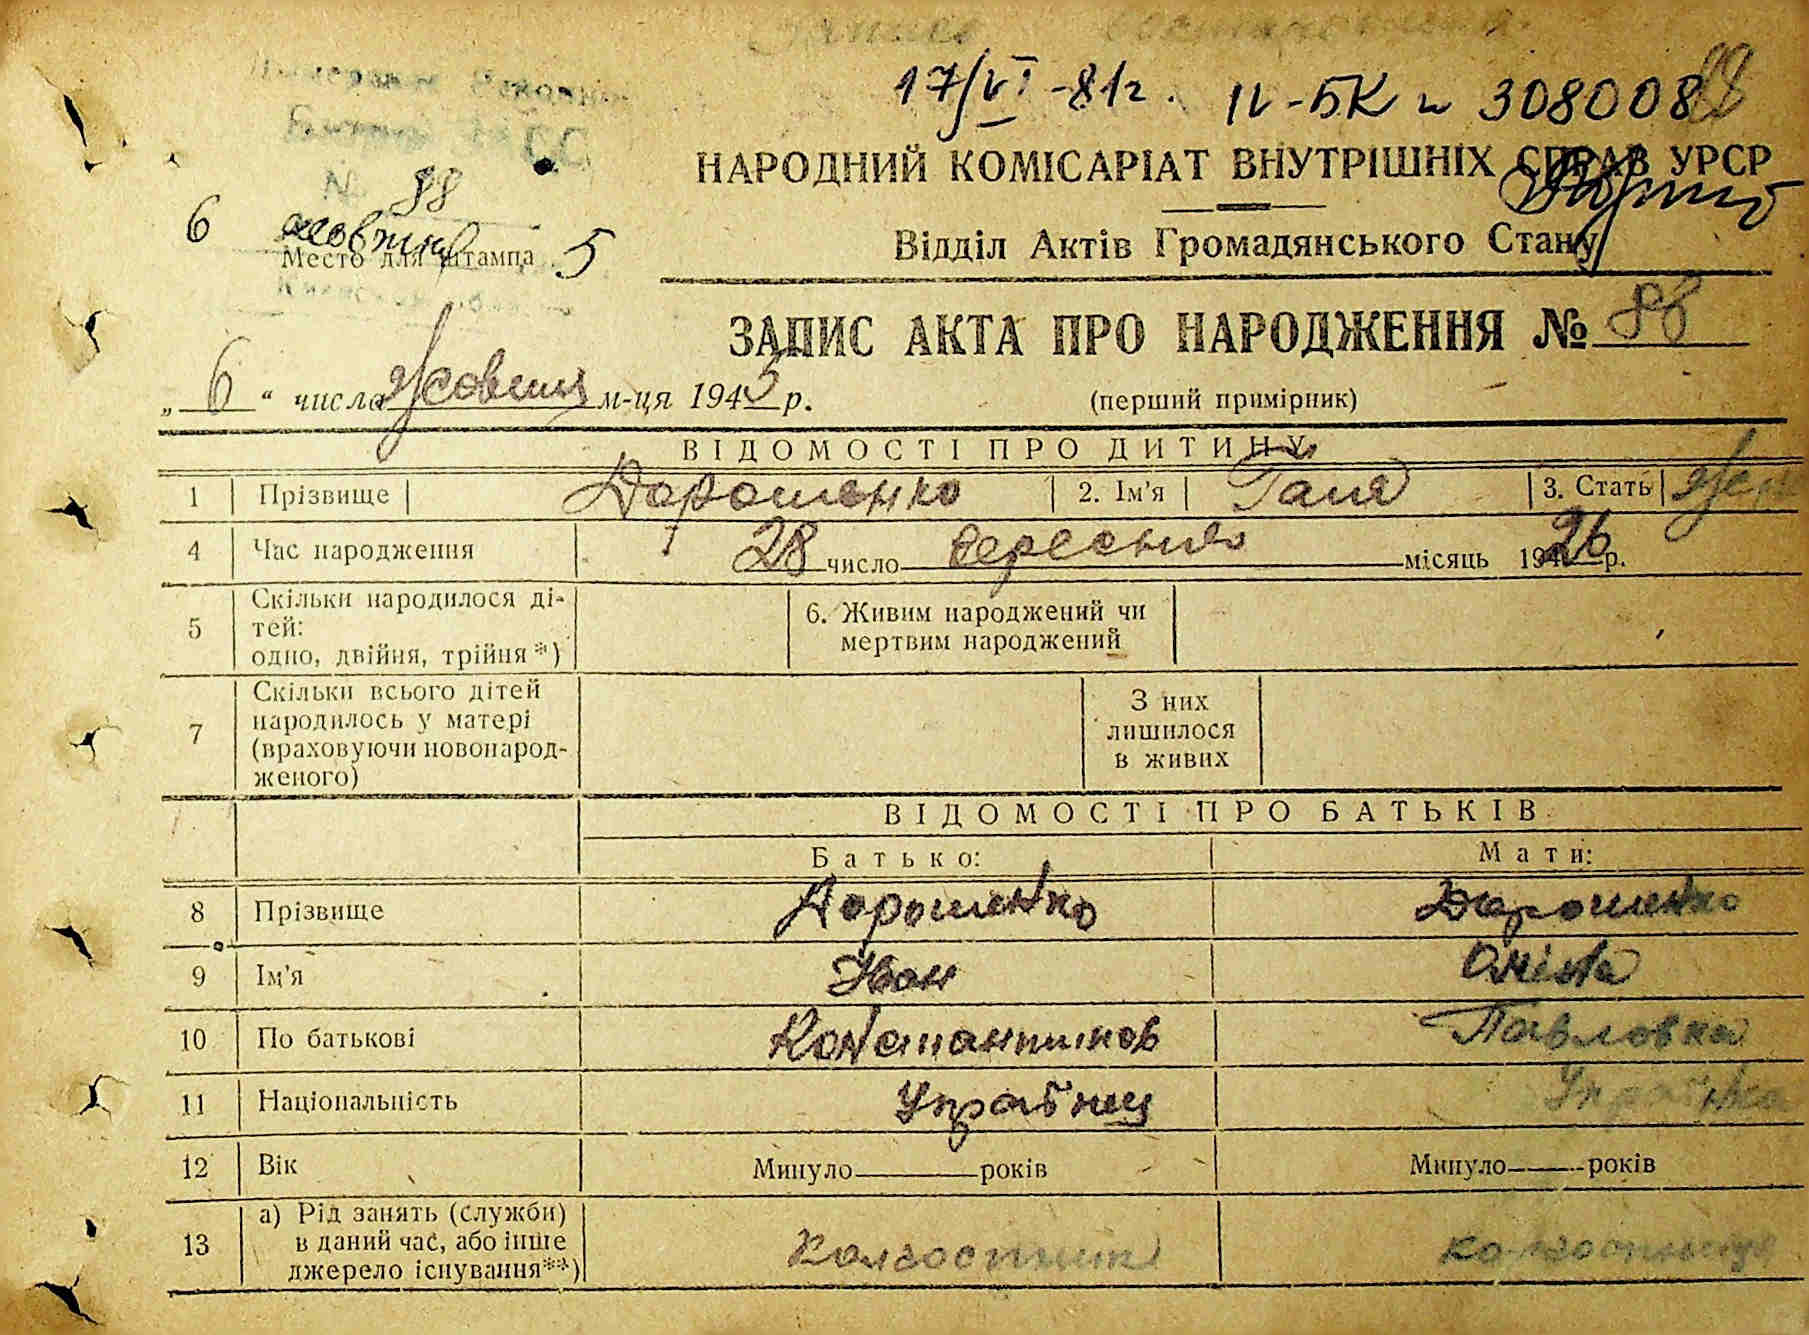 17/VI -81г. IV-БК № 308008
88
НАРОДНИЙ КОМІСАРІАТ ВНУТРІШНІХ СПРАВ УРСР
№ 88
6 жовтня 5
Место для штампа
Відділ Актів Громадянського Стану
ЗАПИС АКТА ПРО НАРОДЖЕННЯ № 88
„ 6 “ числа Жовтня м-ця 1945 р.
(перший примірник)
ВІДОМОСТІ ПРО ДИТИНУ
1 Прізвище Дорошенко 2. Ім'я Галя 3. Стать жен
4 Час народження 28 число вересня місяць 1926 р.
5 Скільки народилося ді-
тей:
одно, двійня, трійня*)
6. Живим народжений чи
мертвим народжений
7 Скільки всього дітей
народилось у матері
(враховуючи новонарод-
женого)
З них
лишилося
в живих
ВІДОМОСТІ ПРО БАТЬКІВ
Батько: Мати:
8 Прізвище Дорошенко Дорошенко
9 Ім'я Иван
10 По батькові Константинов Павловна
11 Національність Українец Українка
12 Вік Минуло років Минуло років
13 а) Рід занять (служби)
в даний час, або інше
джерело існування**)
Колгоспник колгоспниця